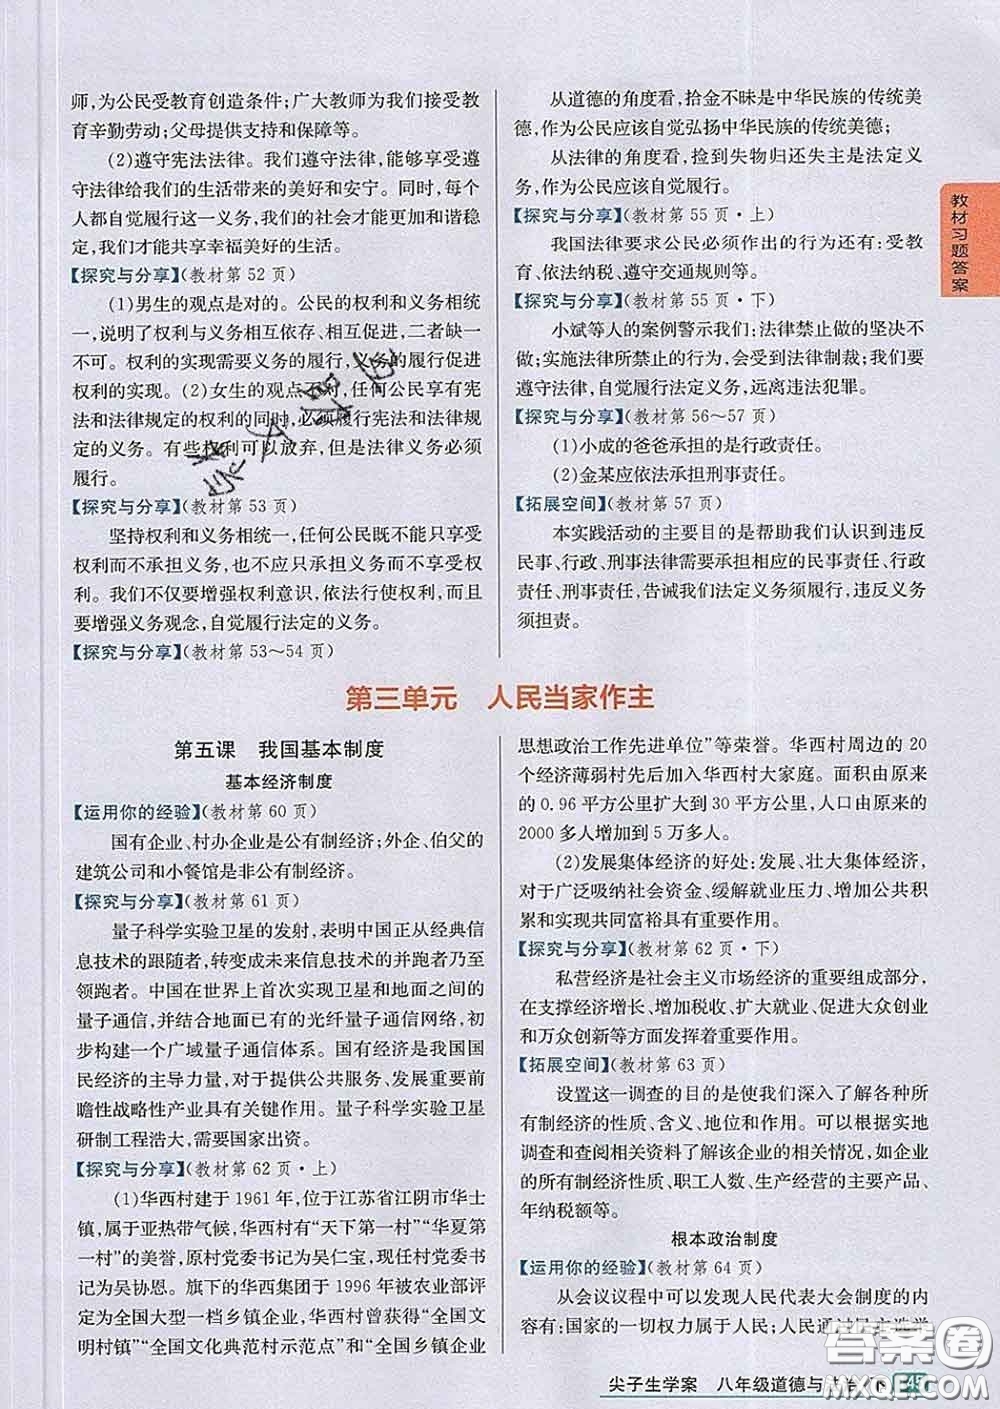 师,为公民受教育创造条件;广大教师为我们接受教
育辛勤劳动;父母提供支持和保障等。
(2)遵守宪法法律。我们遵守法律,能够享受遵
守法律给我们的生活带来的美好和安宁。同时,每个
人都自觉履行这一义务,我们的社会才能更加和谐稳
定,我们才能共享幸福美好的生活。
【探究与分享】(教材第 52 页)
(1)男生的观点是对的。公民的权利和义务相统
一,说明了权利与义务相互依存、相互促进,二者缺一
不可。权利的实现需要义务的履行,义务的履行促进
权利的实现。(2)女生的观点不对,任何公民享有宪
法和法律规定的权利的同时,必须履行宪法和法律规
定的义务。有些权利可以放弃,但是法律义务必须
履行。
【探究与分享】(教材第 53 页)
坚持权利和义务相统一,任何公民既不能只享受
权利而不承担义务,也不应只承担义务而不享受权
利。我们不仅要增强权利意识,依法行使权利,而且
要增强义务观念,自觉履行法定的义务。
【探究与分享】(教材第 53～54 页)
从道德的角度看,拾金不昧是中华民族的传统美
德,作为公民应该自觉弘扬中华民族的传统美德;
从法律的角度看,捡到失物归还失主是法定义
务,作为公民应该自觉履行。
【探究与分享】(教材第 55 页·上)
我国法律要求公民必须作出的行为还有:受教
育、依法纳税、遵守交通规则等。
【探究与分享】(教材第 55 页·下)
小斌等人的案例警示我们:法律禁止做的坚决不
做;实施法律所禁止的行为,会受到法律制裁;我们要
遵守法律,自觉履行法定义务,远离违法犯罪。
【探究与分享】(教材第 56～57 页)
(1)小成的爸爸承担的是行政责任。
(2)金某应依法承担刑事责任。
【拓展空间】(教材第 57 页)
本实践活动的主要目的是帮助我们认识到违反
民事、行政、刑事法律需要承担相应的民事责任、行政
责任、刑事责任,告诫我们法定义务须履行,违反义务
须担责。
教材习题答案
第三单元 人民当家作主
第五课 我国基本制度
基本经济制度
【运用你的经验】(教材第 60 页)
国有企业、村办企业是公有制经济;外企、伯父的
建筑公司和小餐馆是非公有制经济。
【探究与分享】(教材第 61 页)
量子科学实验卫星的发射,表明中国正从经典信
息技术的跟随者,转变成未来信息技术的并跑者乃至
领跑者。中国在世界上首次实现卫星和地面之间的
量子通信,并结合地面已有的光纤量子通信网络,初
步构建一个广域量子通信体系。国有经济是我国国
民经济的主导力量,对于提供公共服务、发展重要前
瞻性战略性产业具有关键作用。量子科学实验卫星
研制工程浩大,需要国家出资。
【探究与分享】(教材第 62 页·上)
(1)华西村建于 1961 年,位于江苏省江阴市华士
镇,属于亚热带气候,华西村有“天下第一村”“华夏第
一村”的美誉,原村党委书记为吴仁宝,现任村党委书
记为吴协恩。旗下的华西集团于 1996 年被农业部评
定为全国大型一档乡镇企业,华西村曾获得“全国文
明村镇”“全国文化典范村示范点”和“全国乡镇企业
思想政治工作先进单位”等荣誉。华西村周边的 20
个经济薄弱村先后加入华西村大家庭。面积由原来
的 0.96 平方公里扩大到 30 平方公里,人口由原来的
2000 多人增加到 5 万多人。
(2)发展集体经济的好处:发展、壮大集体经济,
对于广泛吸纳社会资金、缓解就业压力、增加公共积
累和实现共同富裕具有重要作用。
【探究与分享】(教材第 62 页·下)
私营经济是社会主义市场经济的重要组成部分,
在支撑经济增长、增加税收、扩大就业、促进大众创业
和万众创新等方面发挥着重要作用。
【拓展空间】(教材第 63 页)
设置这一调查的目的是使我们深入了解各种所
有制经济的性质、含义、地位和作用。可以根据实地
调查和查阅相关资料了解该企业的相关情况,如企业
的所有制经济性质、职工人数、生产经营的主要产品、
年纳税额等。
根本政治制度
【运用你的经验】(教材第 64 页)
从会议议程中可以发现人民代表大会制度的内
容有:国家的一切权力属于人民;人民通过民主选举
尖子生学案 八年级道德与法治 下 45
答案圈